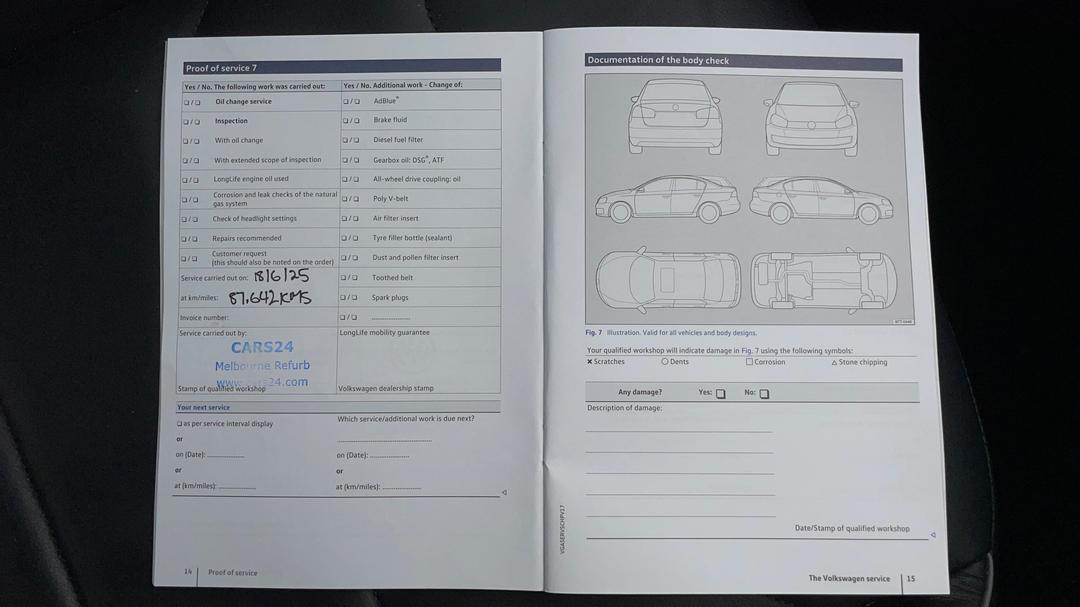 Proof of service 7
Yes / No. The following work was carried out:
❏ / ❏ Oil change service
❏ / ❏ Inspection
❏ / ❏ With oil change
❏ / ❏ With extended scope of inspection
❏ / ❏ LongLife engine oil used
❏ / ❏ Corrosion and leak checks of the natural
gas system
❏ / ❏ Check of headlight settings
❏ / ❏ Repairs recommended
❏ / ❏ Customer request
(this should also be noted on the order)
Service carried out on: 18/6/25
at km/miles: 87,642KMS
Invoice number:
Service carried out by:
CARS24
Melbourne Refurb
www.cars24.com
Stamp of qualified workshop
Yes / No. Additional work - Change of:
❏ / ❏ AdBlue®
❏ / ❏ Brake fluid
❏ / ❏ Diesel fuel filter
❏ / ❏ Gearbox oil: DSG®, ATF
❏ / ❏ All-wheel drive coupling: oil
❏ / ❏ Poly V-belt
❏ / ❏ Air filter insert
❏ / ❏ Tyre filler bottle (sealant)
❏ / ❏ Dust and pollen filter insert
❏ / ❏ Toothed belt
❏ / ❏ Spark plugs
❏ / ❏ ....................
LongLife mobility guarantee
Volkswagen dealership stamp
Your next service
❏ as per service interval display
or
on (Date): ....................
or
at (km/miles): ....................
Which service/additional work is due next?
....................
on (Date): ....................
or
at (km/miles): ....................
14 | Proof of service
Documentation of the body check
Fig. 7 Illustration. Valid for all vehicles and body designs.
Your qualified workshop will indicate damage in Fig. 7 using the following symbols:
✖ Scratches ○ Dents □ Corrosion △ Stone chipping
Any damage? Yes: ❏ No: ❏
Description of damage:
Date/Stamp of qualified workshop
VGASERVSCHPV17
The Volkswagen service | 15